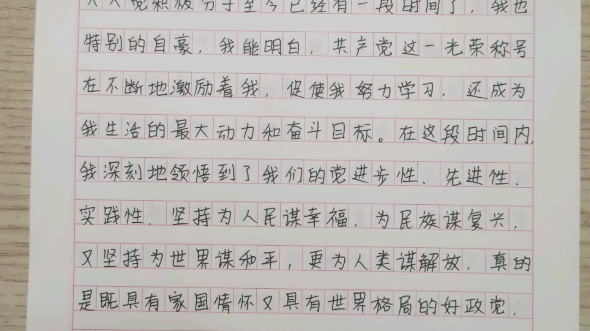 入党积极分子至今已经有一段时间了，我也
特别的自豪，我能明白，共产党这一光荣称号
在不断地激励着我，促使我努力学习，还成为
我生活的最大动力和奋斗目标。在这段时间内，
我深刻地领悟到了我们的党进步性、先进性、
实践性，坚持为人民谋幸福，为民族谋复兴，
又坚持为世界谋和平，更为人类谋解放，真的
是既具有家国情怀又具有世界格局的好政党，